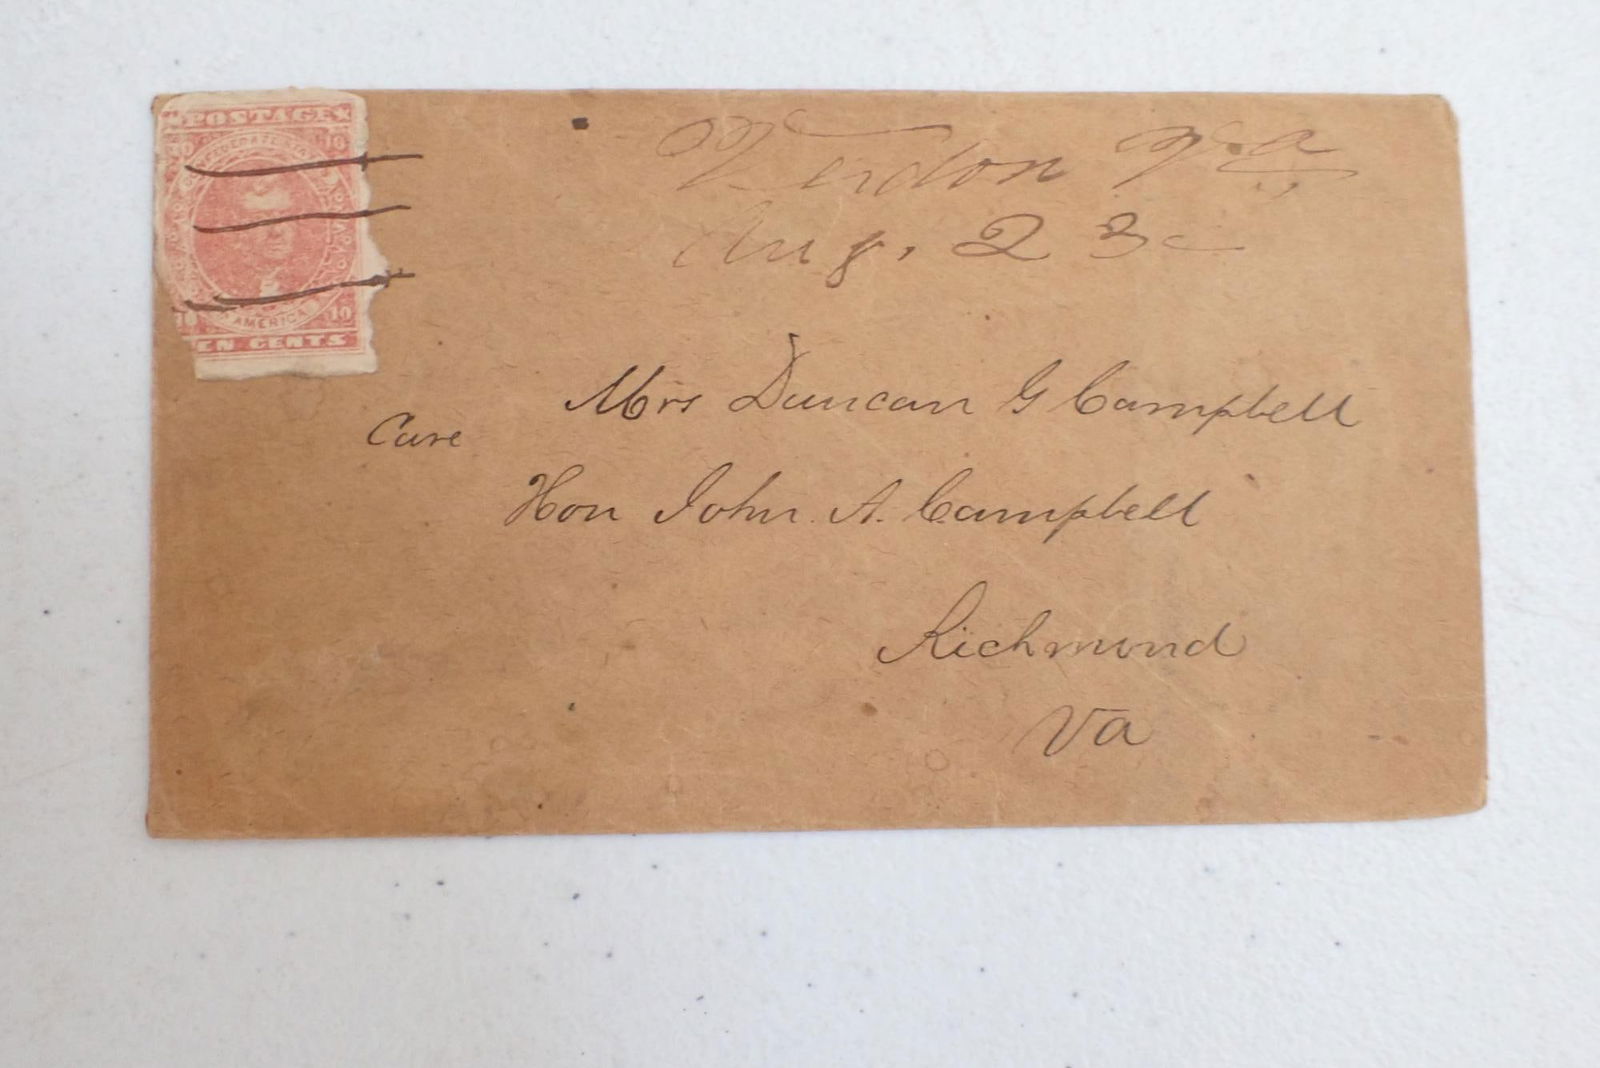 POSTAGE
CONFEDERATE STA
10
OF AMERICA
10 10
EN CENTS
Verdon Va
Aug. 23
Mrs Duncan G Campbell
Care
Hon John A. Campbell
Richmond
Va